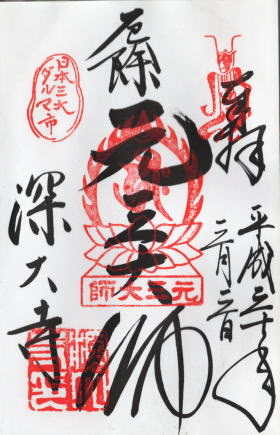 奉拝
平成二十年
三月三日
厄除
元三大師
元三大師
日本三大
ダルマ市
深大寺